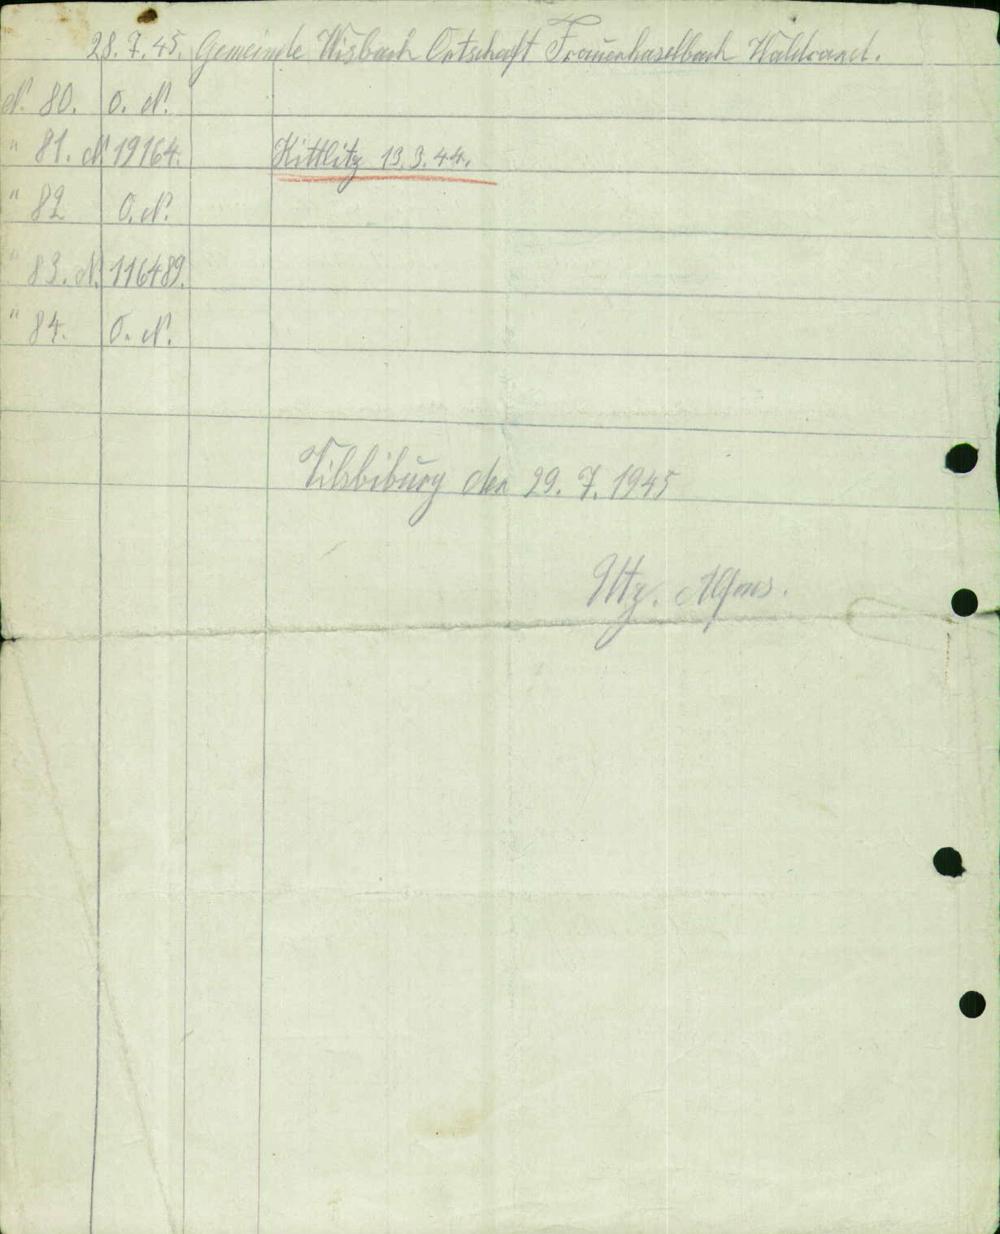 28.7.45. Gemeinde Wisbach Ortschaft Frauenhaselbach Waldrand.
N. 80. O. N.
" 81. N. 19164. Kittlitz 13.3.44.
" 82 O. N.
" 83. N. 116489.
" 84. O. N.
Vilsbiburg den 29. 7. 1945
Utz. Alfons.